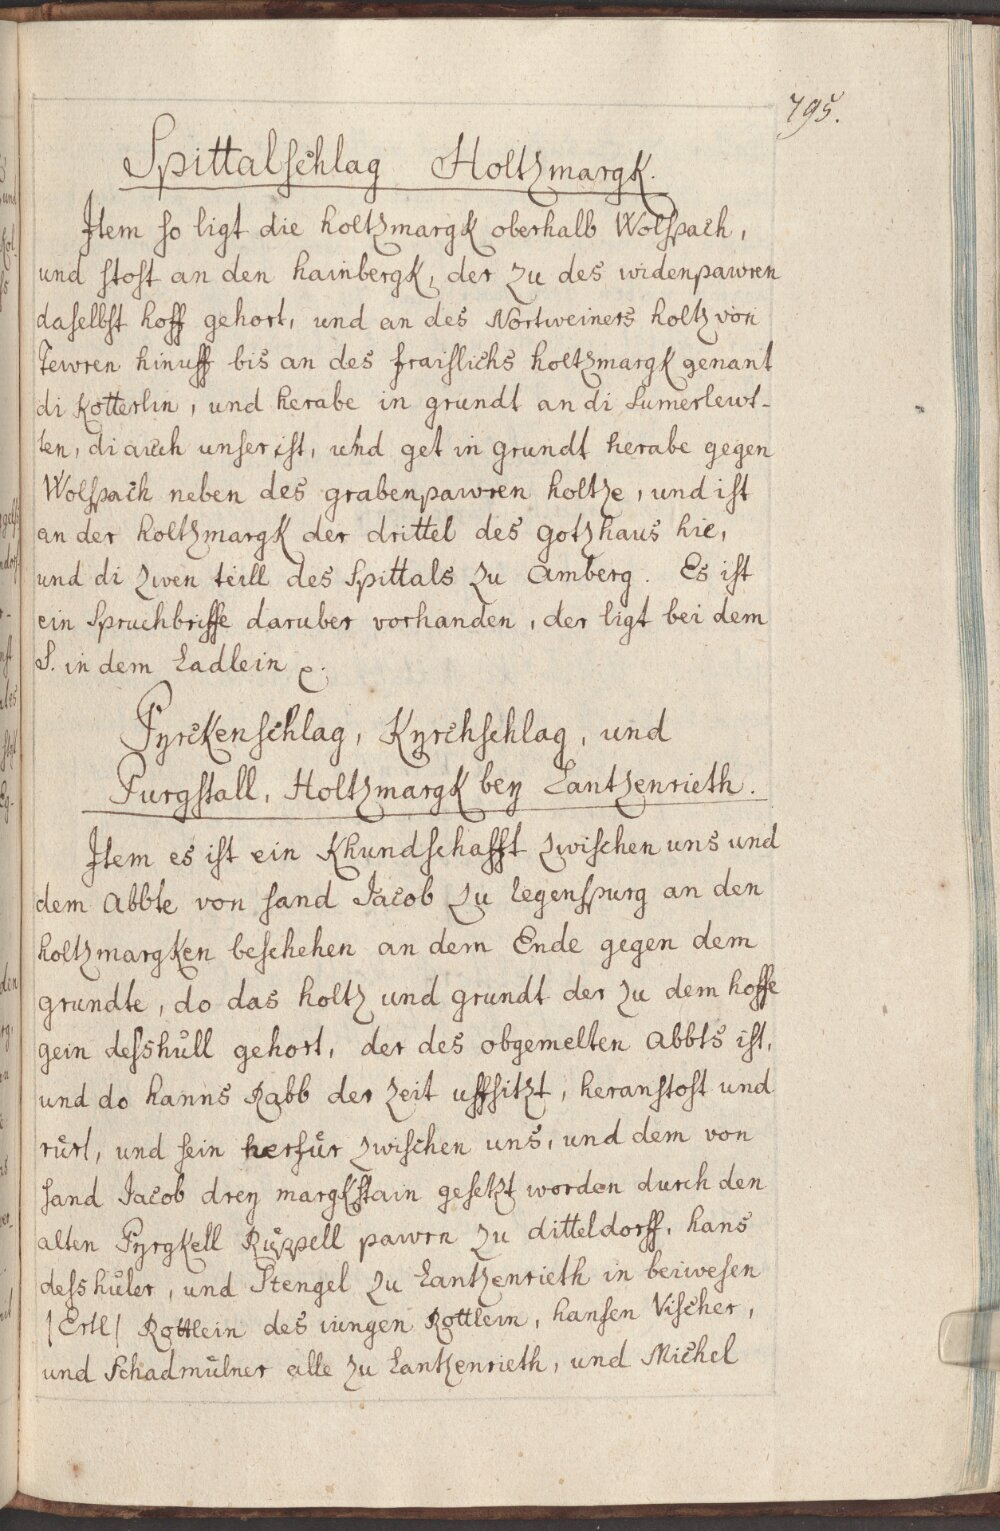 795.
Spittalschlag Holtzmargk.
Item so ligt die holtzmargk oberhalb Wolspach,
und stost an den hainbergk, der zu des widenpawren
daselbst hoff gehort, und an des Nortweiners holtz von
Tewren hinuff bis an des fraislichs holtzmargk genant
di Kotterlin, und herabe in grundt an di Sumerlewt-
ten, di auch unser ist, und get in grundt herabe gegen
Wolspach neben des grabenpawren holtze, und ist
an der holtzmargk der drittel des gotzhaus hie,
und di zwen teill des Spittals zu Amberg. Es ist
ein Spruchbriffe daruber vorhanden, der ligt bei dem
S. in dem Ladlein
Pyrckenschlag, Kyrchschlag, und
Purgstall, Holtzmargk bey Lantzenrieth.
Item es ist ein Khundschafft zwischen uns und
dem Abbte von sand Jacob zu legenspurg an den
holtzmargken beschehen an dem Ende gegen dem
grundte, do das holtz und grundt der zu dem hoffe
gein desshüll gehort, der des obgemelten Abbts ist,
und do hanns Rabb der zeit uffsitzt, heranstost und
rürt, und sein herfür zwischen uns, und dem von
sand Jacob drey margkstain gesetzt worden durch den
alten Pyrgkell Rüppell pawrn zu ditteldorff, hans
desshüler, und Stengel zu Lantzenrieth in beiwesen
/Ertl/ Rottlein des iungen Rottlein, hansen Vischer,
und Schadmülner alle zu Lantzenrieth, und Michel